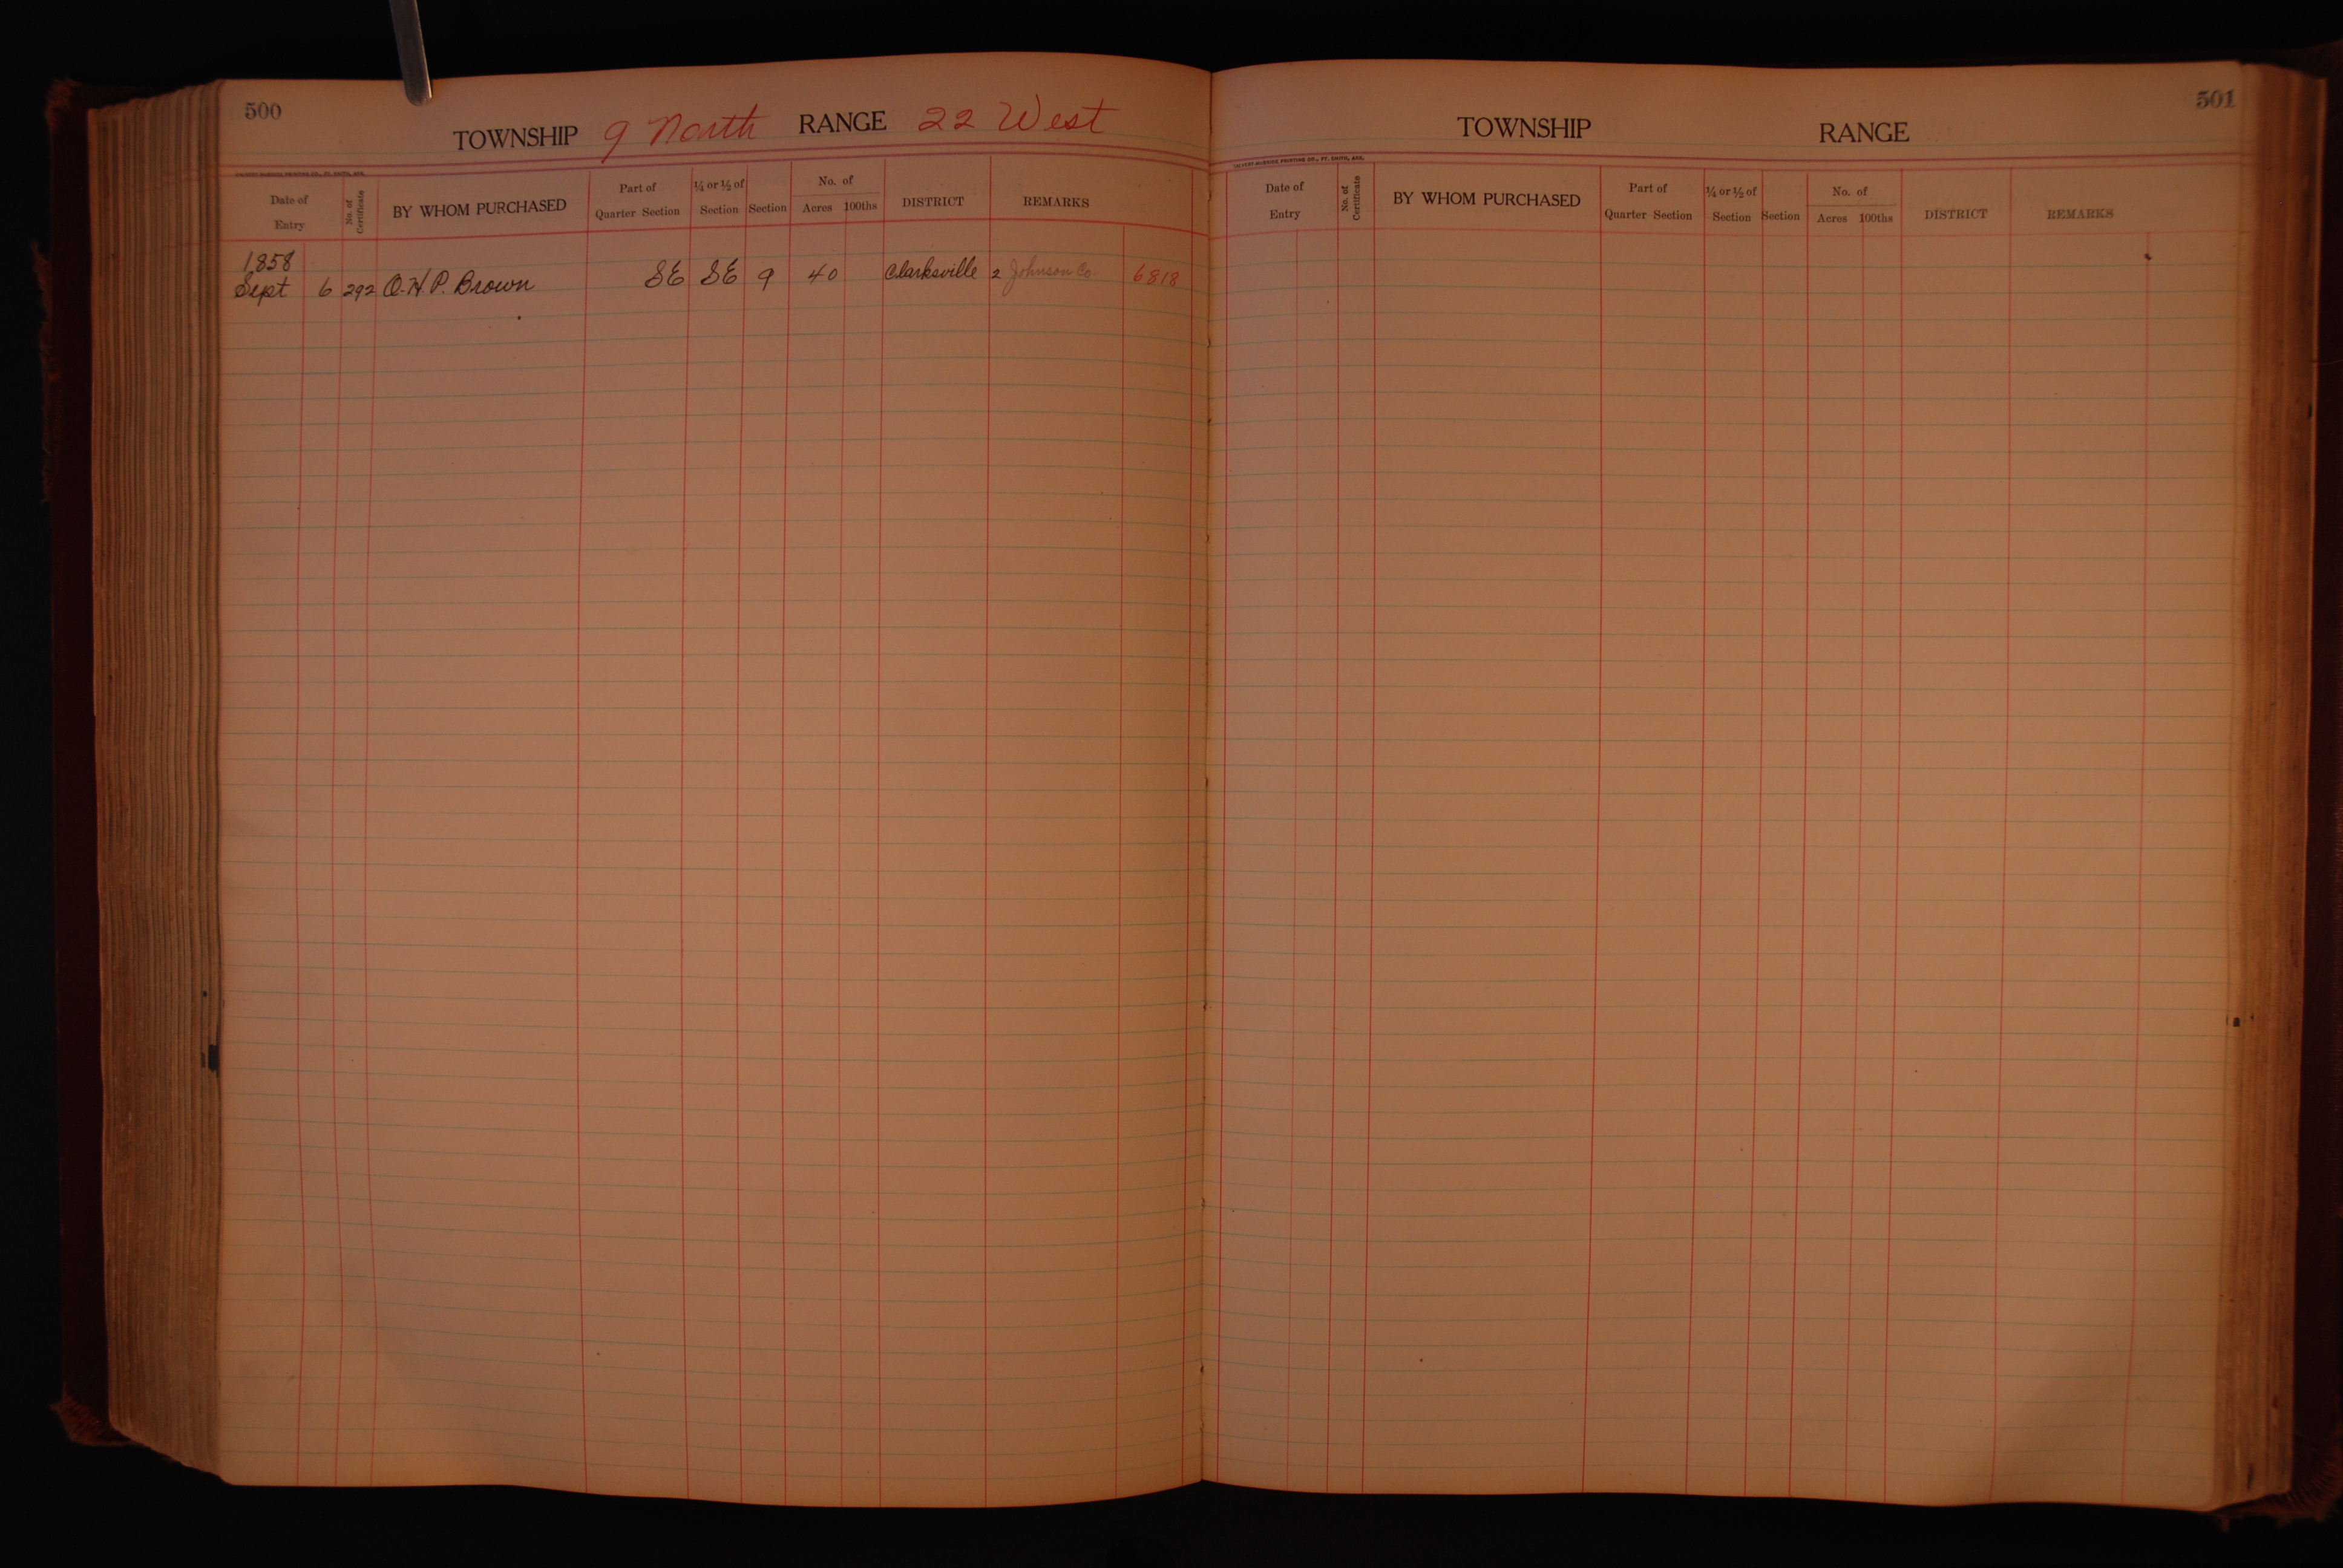 500
TOWNSHIP 9 North RANGE 22 West
Date of Entry No. of Certificate BY WHOM PURCHASED Part of Quarter Section ¼ or ½ of Section Section No. of Acres 100ths DISTRICT REMARKS
1858
Sept 6 292 O. H. P. Brown SE SE 9 40 Clarksville 2 Johnson Co. 6818
501
TOWNSHIP RANGE
PRINTING CO., FT. SMITH, ARK.
Date of Entry No. of Certificate BY WHOM PURCHASED Part of Quarter Section ¼ or ½ of Section Section No. of Acres 100ths DISTRICT REMARKS